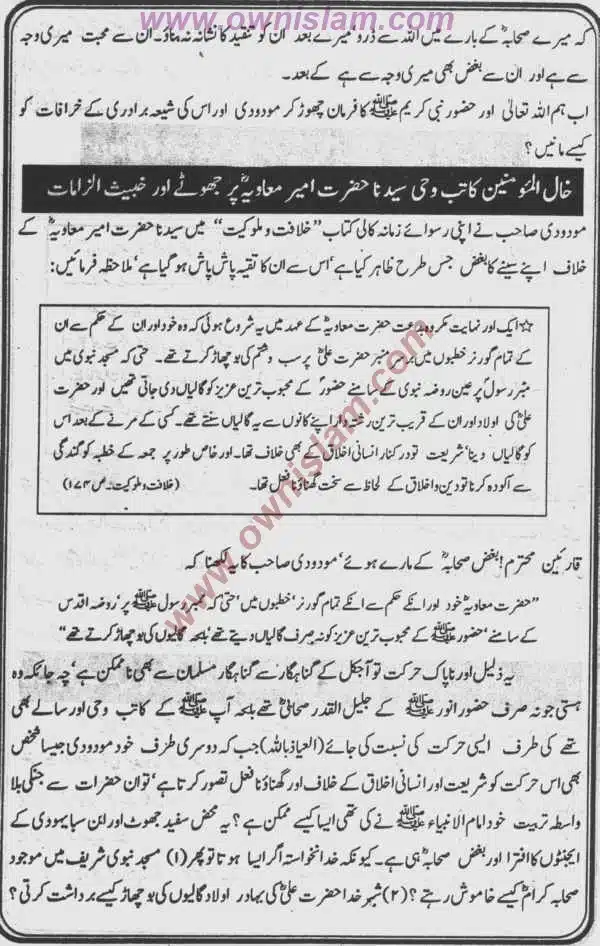 www.ownislam.com
کہ میرے صحابہؓ کے بارے میں اللہ سے ڈرو میرے بعد ان کو تنقید کا نشانہ نہ بناؤ۔ ان سے محبت میری وجہ
سے ہے اور ان سے بغض بھی میری وجہ سے ہے کے بعد۔
اب ہم اللہ تعالیٰ اور حضور نبی کریم ﷺ کا فرمان چھوڑ کر مودودی اور اس کی شیعہ برادری کے خرافات کو
کیسے مانیں؟
خال المؤمنین کاتب وحی سیدنا حضرت امیر معاویہؓ پر جھوٹے اور خبیث الزامات
مودودی صاحب نے اپنی رسوائے زمانہ کالی کتاب "خلافت و ملوکیت" میں سیدنا حضرت امیر معاویہؓ کے
خلاف اپنے سینے کا بغض جس طرح ظاہر کیا ہے، اس سے ان کا تقیہ پاش پاش ہو گیا ہے، ملاحظہ فرمائیں:
☆ ایک اور نہایت مکروہ بدعت حضرت معاویہؓ کے عہد میں یہ شروع ہوئی کہ وہ خود اور ان کے حکم سے ان
کے تمام گورنر خطبوں میں برسر منبر حضرت علیؓ پر سب و شتم کی بوچھاڑ کرتے تھے۔ حتی کہ مسجد نبوی میں
منبر رسولؐ پر عین روضہ نبوی کے سامنے حضورؐ کے محبوب ترین عزیز کو گالیاں دی جاتی تھیں اور حضرت
علیؓ کی اولاد اور ان کے قریب ترین رشتہ دار اپنے کانوں سے یہ گالیاں سنتے تھے۔ کسی کے مرنے کے بعد اس
کو گالیاں دینا، شریعت تو درکنار انسانی اخلاق کے بھی خلاف تھا۔ اور خاص طور پر جمعہ کے خطبہ کو گندگی
سے آلودہ کرنا تو دین و اخلاق کے لحاظ سے سخت گھناؤنا فعل تھا۔ (خلافت و ملوکیت۔ ص ۱۷۴)
قارئین محترم! بغض صحابہؓ کے مارے ہوئے، مودودی صاحب کا یہ لکھنا کہ
"حضرت معاویہؓ خود اور انکے حکم سے انکے تمام گورنر، خطبوں میں، حتی کہ ممبر رسول ﷺ پر، روضہ اقدس
کے سامنے، حضور ﷺ کے محبوب ترین عزیز کو نہ صرف گالیاں دیتے تھے، بلکہ گالیوں کی بوچھاڑ کرتے تھے"
یہ ذلیل اور ناپاک حرکت تو آجکل کے گناہگار سے گناہگار مسلمان سے بھی ناممکن ہے، چہ جائیکہ وہ
ہستی جو نہ صرف حضور انور ﷺ کے جلیل القدر صحابیؓ تھے بلکہ آپ ﷺ کے کاتب وحی اور سالے بھی
تھے کی طرف ایسی حرکت کی نسبت کی جائے (العیاذ باللہ) جب کہ دوسری طرف خود مودودی جیسا شخص
بھی اس حرکت کو شریعت اور انسانی اخلاق کے خلاف اور گھناؤنا فعل تصور کرتا ہے، تو ان حضرات سے جنکی بلا
واسطہ تربیت خود امام الانبیاء ﷺ نے کی تھی ایسا کیسے ممکن ہے؟ یہ محض سفید جھوٹ اور ابن سبا یہودی کے
ایجنٹوں کا افترا اور بغض صحابہؓ ہی ہے۔ کیونکہ خدانخواستہ اگر ایسا ہوتا تو پھر (۱) مسجد نبوی شریف میں موجود
صحابہ کرامؓ کیسے خاموش رہتے؟ (۲) شیر خدا حضرت علیؓ کی بہادر اولاد گالیوں کی بوچھاڑ کیسے برداشت کرتی؟
www.ownislam.com